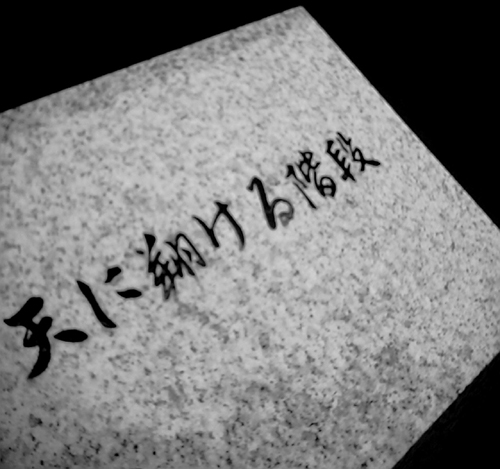 天に翔ける階段